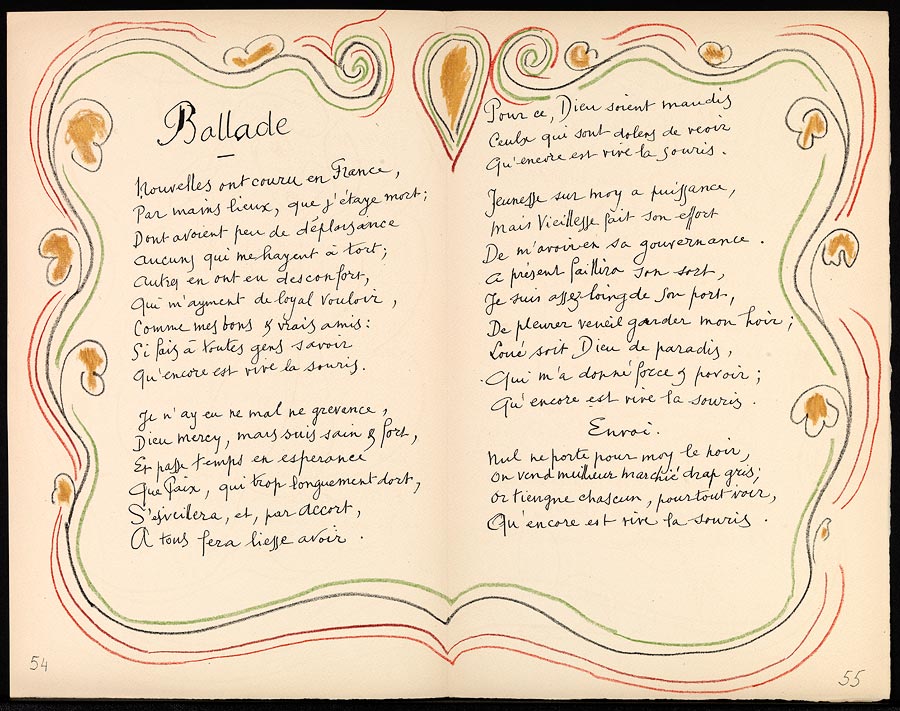 Ballade
Nouvelles ont couru en France,
Par mains lieux, que j'étaye mort;
Dont avoient peu de déplaisance
aucuns qui me hayent à tort;
Autres en ont eu desconfort,
Qui m'ayment de loyal vouloir,
Comme mes bons & vrais amis:
Si fais à toutes gens savoir
Qu'encore est vive la souris.
Je n'ay eu ne mal ne grevence,
Dieu mercy, mais suis sain & fort,
Et passe temps en esperance
Que Paix, qui trop longuement dort,
S'esveillera, et, par accort,
A tous fera liesse avoir.
54
Pour ce, Dieu soient maudis
Ceulx qui sont dolens de veoir
Qu'encore est vive la souris.
Jeunesse sur moy a puissance,
mais Vieillesse fait son effort
De m'avoir en sa gouvernance.
a présent faillira son sort,
Je suis assez loing de son port,
De pleurer vueil garder mon hoir;
Loué soit Dieu de paradis,
Qui m'a donné force & povoir;
Qu'encore est vive la souris.
Envoi.
Nul ne porte pour moy le noir,
on vend meillieur marchié drap gris;
or tiengne chascun, pour tout voir,
Qu'encore est vive la souris.
55